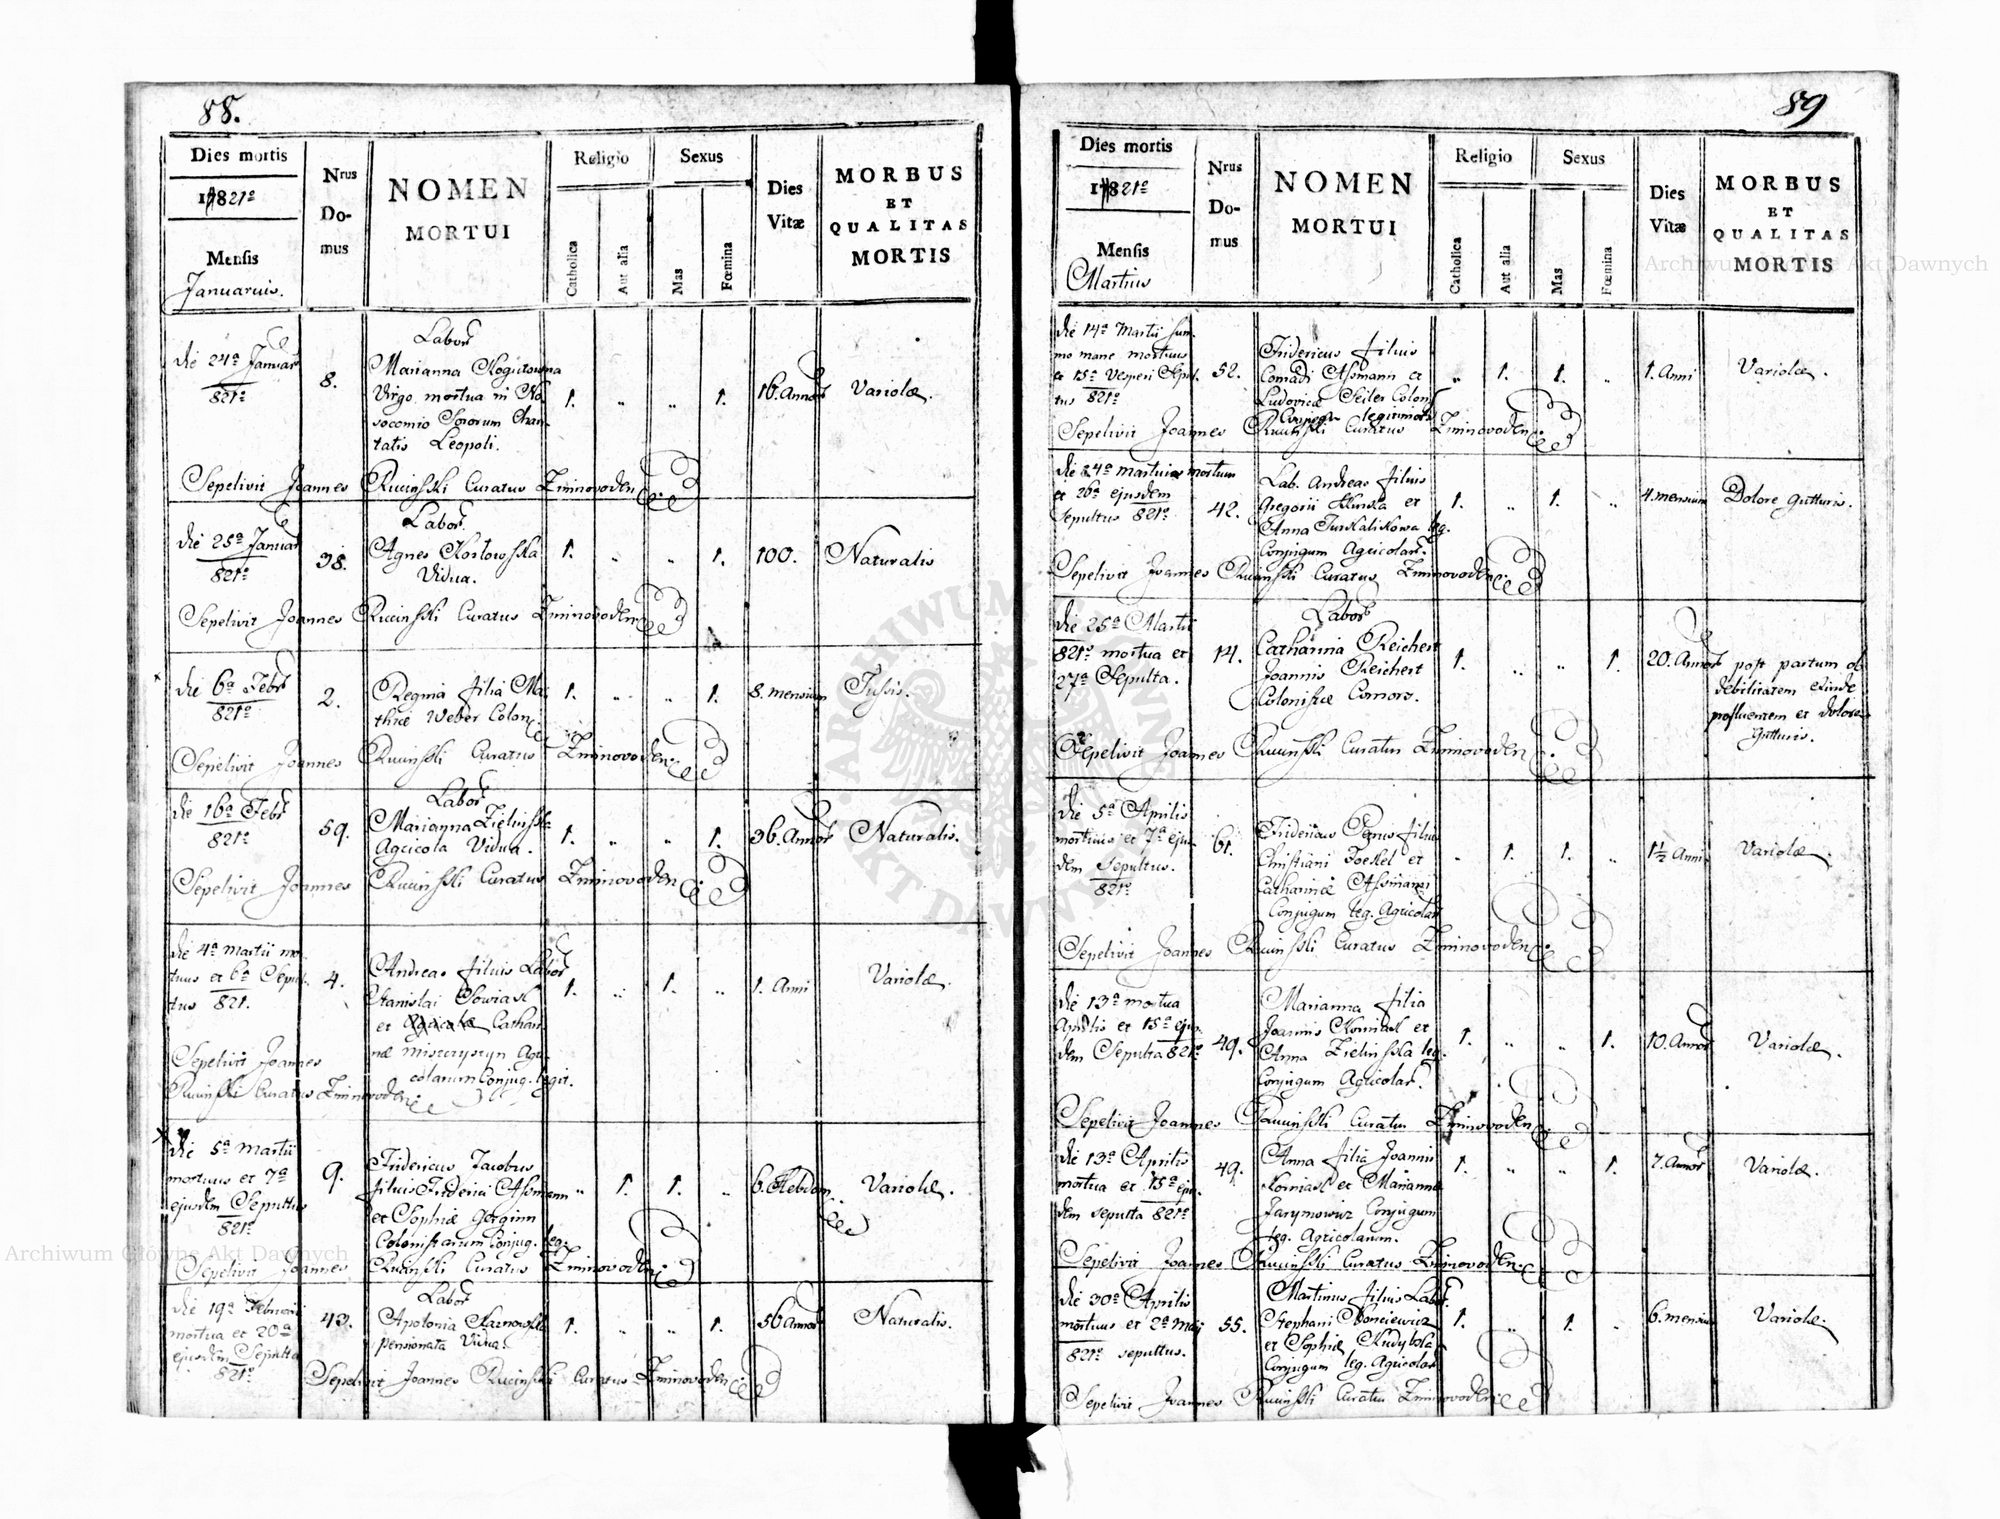 88.
Dies mortis
1821º
Mensis
Januarius.
Nrus
Do-
mus
NOMEN
MORTUI
Religio
Catholica
Aut alia
Sexus
Mas
Fœmina
Dies
Vitæ
MORBUS
ET
QUALITAS
MORTIS
die 24ª Januar
821º
8.
Labor
Marianna
Virgo mortua in No
socomio Sororum Chari
tatis Leopoli.
1. „ „ 1.
16. Annor
Variolæ.
Sepelivit Joannes Ruciński Curatus Zminovoden
die 25ª Januar
821º
38.
Labor.
Agnes Kozłowska
Vidua.
1. „ „ 1.
100.
Naturalis
Sepelivit Joannes Ruciński Curatus Zminovoden
die 6ª Febr
821º
2.
Regina filia Ma
thiæ Weber Colon.
1. „ „ 1.
8. mensium
Tussis.
Sepelivit Joannes Ruciński Curatus Zminovoden.
die 16ª Febr
821º
59.
Labor
Marianna Zielińska
Agricola Vidua.
1. „ „ 1.
36. Annor
Naturalis.
Sepelivit Joannes Ruciński Curatus Zminovoden
die 4ª Martii mor
tuus et 6ª Sepul
tus 821.
4.
Andreas filius Labor
Stanislai Sowiask
et Cathari
næ Agri
colarum Conjug. legit.
1. „ 1. „
1. Anni
Variolæ.
Sepelivit Joannes
Ruciński Curatus Zminovoden
die 5ª Martii
mortuus et 7ª
ejusdem Sepultus
821º
9.
Fridericus Jacobus
filius Friderici Assmann
et Sophiæ Gerginn
Colonistarum Conjug. leg.
„ 1. 1. „
6. Hebdom.
Variolæ.
Sepelivit Joannes Ruciński Curatus Zminovoden
die 19ª Februarii
mortua et 20ª
ejusdem Sepulta
821º
43.
Labor
Apolonia
pensionata Vidua.
1. „ „ 1.
56 Annor
Naturalis.
Sepelivit Joannes Ruciński Curatus Zminovoden
89
Dies mortis
1821º
Mensis
Martius
Nrus
Do-
mus
NOMEN
MORTUI
Religio
Catholica
Aut alia
Sexus
Mas
Fœmina
Dies
Vitæ
MORBUS
ET
QUALITAS
MORTIS
die 14ª Martii sum
mo mane mortuus
et 15ª Vesperi Sepul
tus 821º
52.
Fridericus filius
Conradi Assmann et
Ludovicæ Seiler Colon
Conjugum legitimor
„ 1. 1. „
1. Anni
Variolæ.
Sepelivit Joannes Ruciński Curatus Zminovoden
die 24ª Martius mortuus
et 26ª ejusdem
Sepultus 821º
42.
Lab. Andreas filius
Gregorii et
Anna leg.
Conjugum Agricolar.
1. „ 1. „
4. mensium
Dolore gutturis.
Sepelivit Joannes Ruciński Curatus Zminovoden
die 25ª Martii
821º mortua et
27ª Sepulta.
14.
Labor
Catharina Reichert
Joannis Reichert
Colonistæ Comors.
1. „ „ 1.
20. Annor
post partum ob
debilitatem exinde
profluentem et dolore
gutturis.
Sepelivit Joannes Ruciński Curatus Zminovoden
die 5ª Aprilis
mortuus et 7ª ejus
dem Sepultus.
821º
61.
Fridericus filius
Christiani Joekel et
Catharinæ Assmann
Conjugum leg. Agricolar
„ 1. 1. „
1½ Anni
Variolæ.
Sepelivit Joannes Ruciński Curatus Zminovoden
die 13ª mortua
Aprilis et 15ª ejus
dem Sepulta 821º
49.
Marianna filia
Joannis Korniask et
Anna Zielińska leg.
Conjugum Agricolar.
1. „ „ 1.
10. Annor
Variolæ.
Sepelivit Joannes Ruciński Curatus Zminovoden
die 13ª Aprilis
mortua et 15ª ejus
dem sepulta 821º
49.
Anna filia Joannis
Korniask et Marianna
Jarymowicz Conjugum
leg. Agricolarum.
1. „ „ 1.
7. Annor
Variolæ.
Sepelivit Joannes Ruciński Curatus Zminovoden.
die 30ª Aprilis
mortuus et 2ª Maij
821º sepultus.
55.
Martinus filius Labor.
Stephani
et Sophiæ
Conjugum leg. Agricolar
1. „ 1. „
6. mensium
Variolæ.
Sepelivit Joannes Ruciński Curatus Zminovoden
Archiwum Główne Akt Dawnych
Archiwum Główne Akt Dawnych
ARCHIWUM GŁÓWNE AKT DAWNYCH